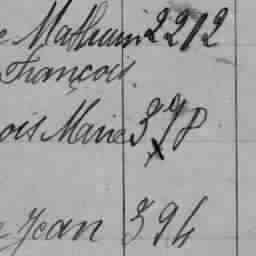 e Mathurin 2212
François
ois Marie 398
x
e Jean 394